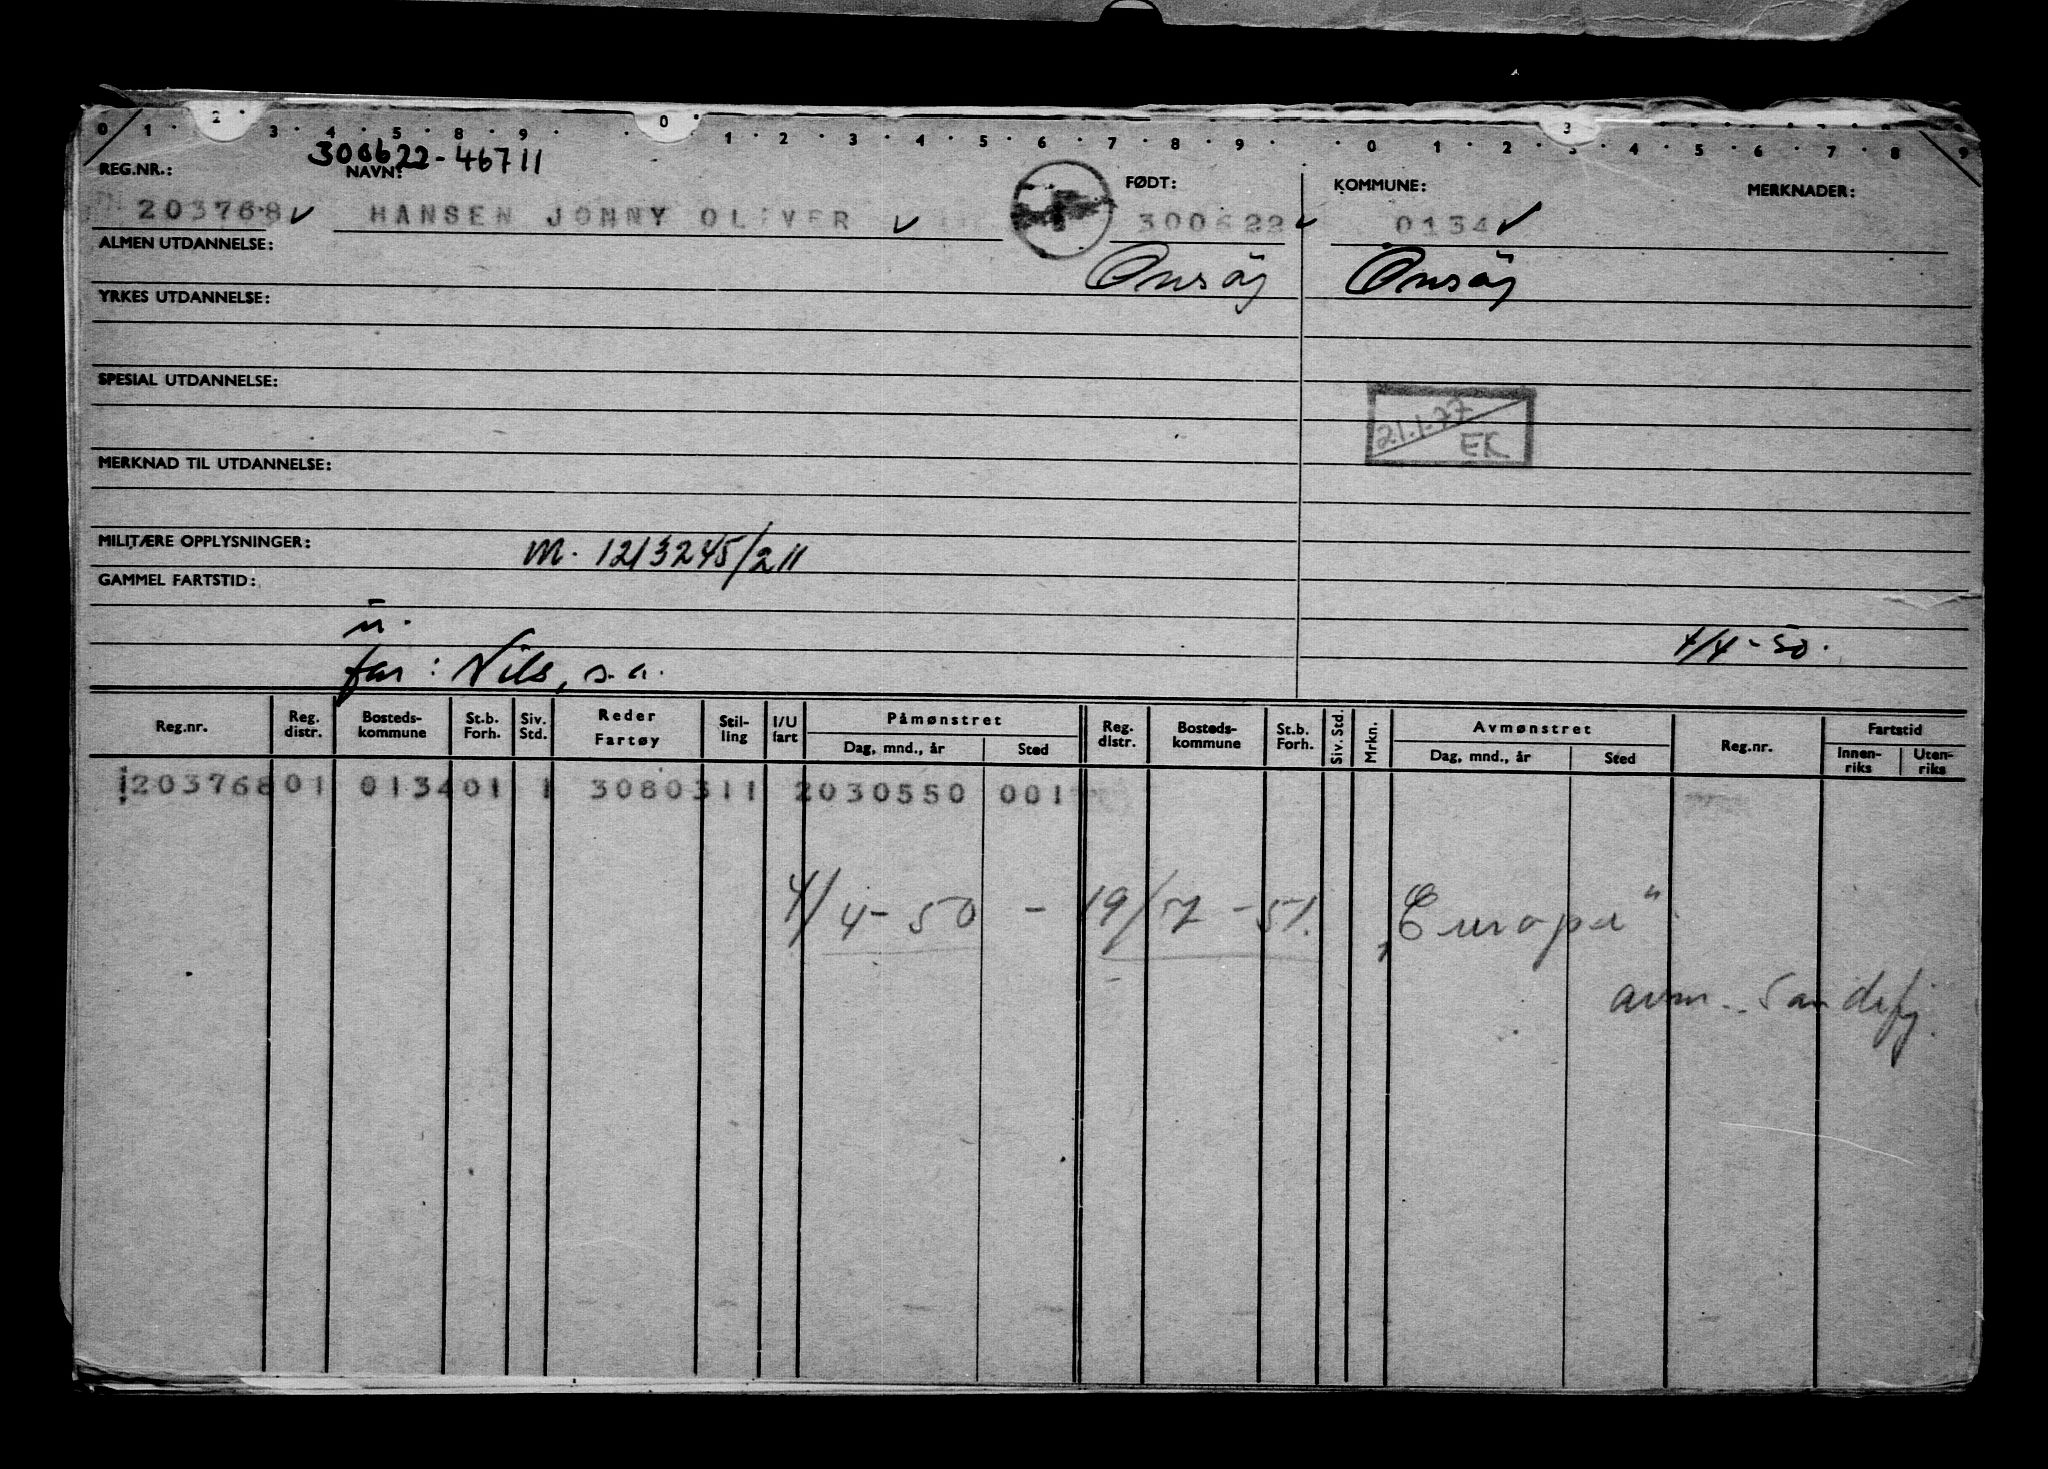 0 1 2 3 4 5 8 9 0 1 2 3 4 5 6 7 8 9 0 1 2 3 4 5 6 7 8 9
300622-46711
REG.NR.: NAVN: FØDT: KOMMUNE: MERKNADER:
203768 HANSEN JONNY OLIVER 300622 0134
ALMEN UTDANNELSE: Onsøy Onsøy
YRKES UTDANNELSE:
SPESIAL UTDANNELSE:
21.1.77
EK
MERKNAD TIL UTDANNELSE:
MILITÆRE OPPLYSNINGER: M. 1213245/211
GAMMEL FARTSTID:
u.
4/4-50.
far: Nils, s.a.
Reg.nr. Reg. distr. Bosteds- kommune St.b. Forh. Siv. Std. Reder Fartøy Stil- ling I/U fart Påmønstret Dag, mnd., år Sted Reg. distr. Bosteds- kommune St.b. Forh. Siv. Std. Mrkn. Avmønstret Dag, mnd., år Sted Reg.nr. Fartstid Innen- riks Uten- riks
203768 01 0134 01 1 3080311 2030550 001
4/4-50 - 19/5-51. "Europa"
avm. Sandefj.